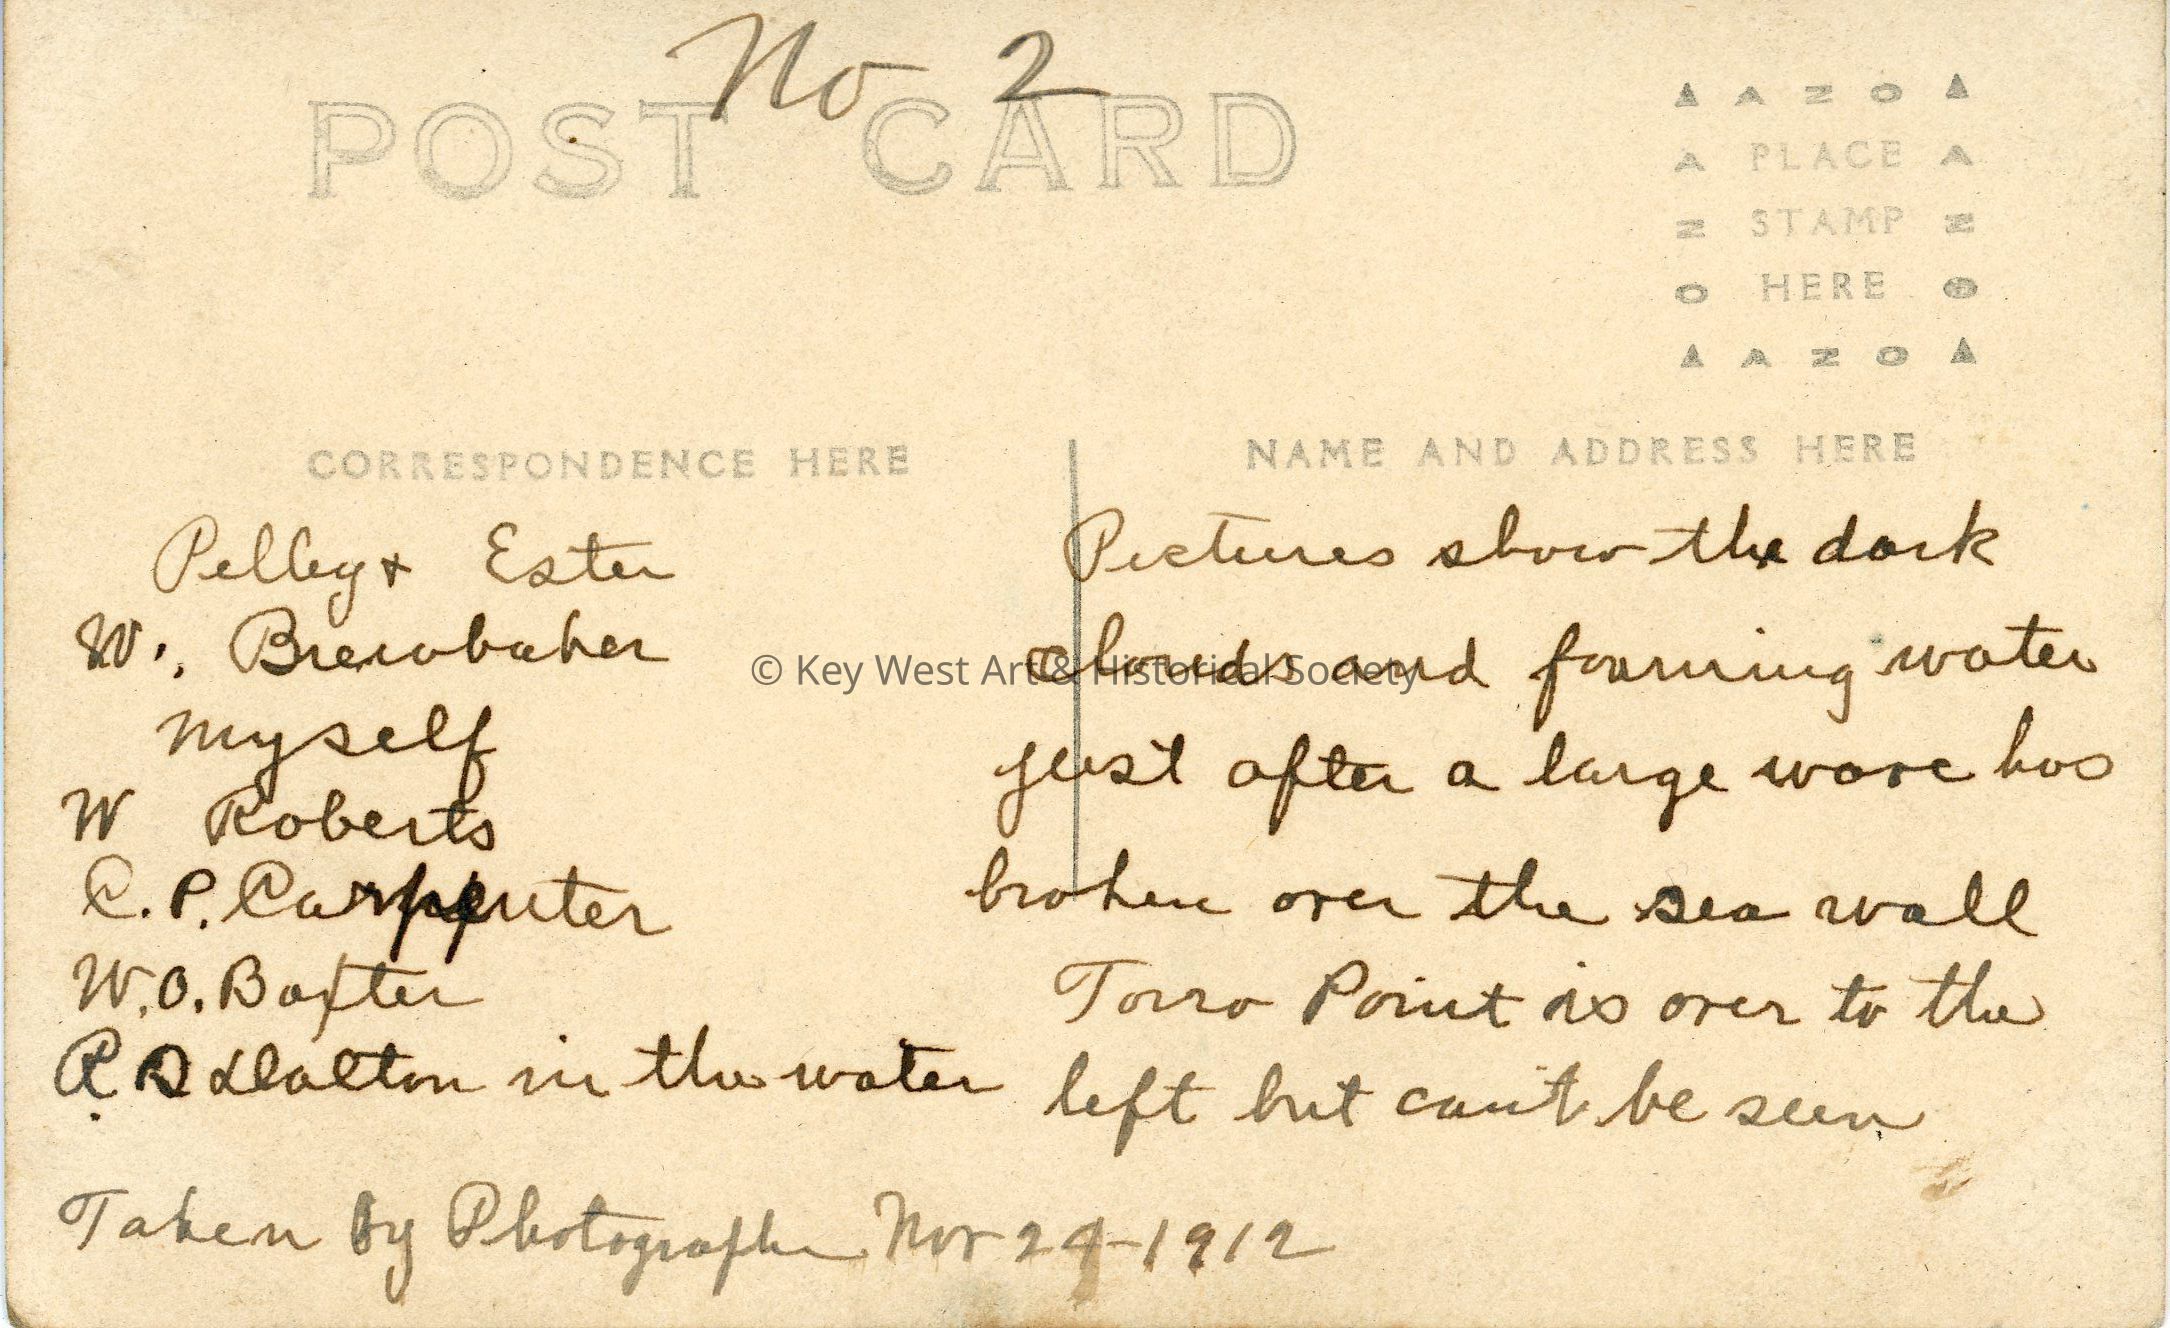 No 2
POST CARD
AZO
PLACE
STAMP
HERE
AZO
CORRESPONDENCE HERE
NAME AND ADDRESS HERE
Pelley + Ester
W. Brewbaker
myself
W Roberts
C. P. Carpenter
W. O. Baxter
Dalton in the water
Pictures show the dark
clouds and foaming water
just after a large wave has
broken over the sea wall
Torro Point is over to the
left but can't be seen
Taken by Photographer Nov 24-1912
© Key West Art & Historical Society